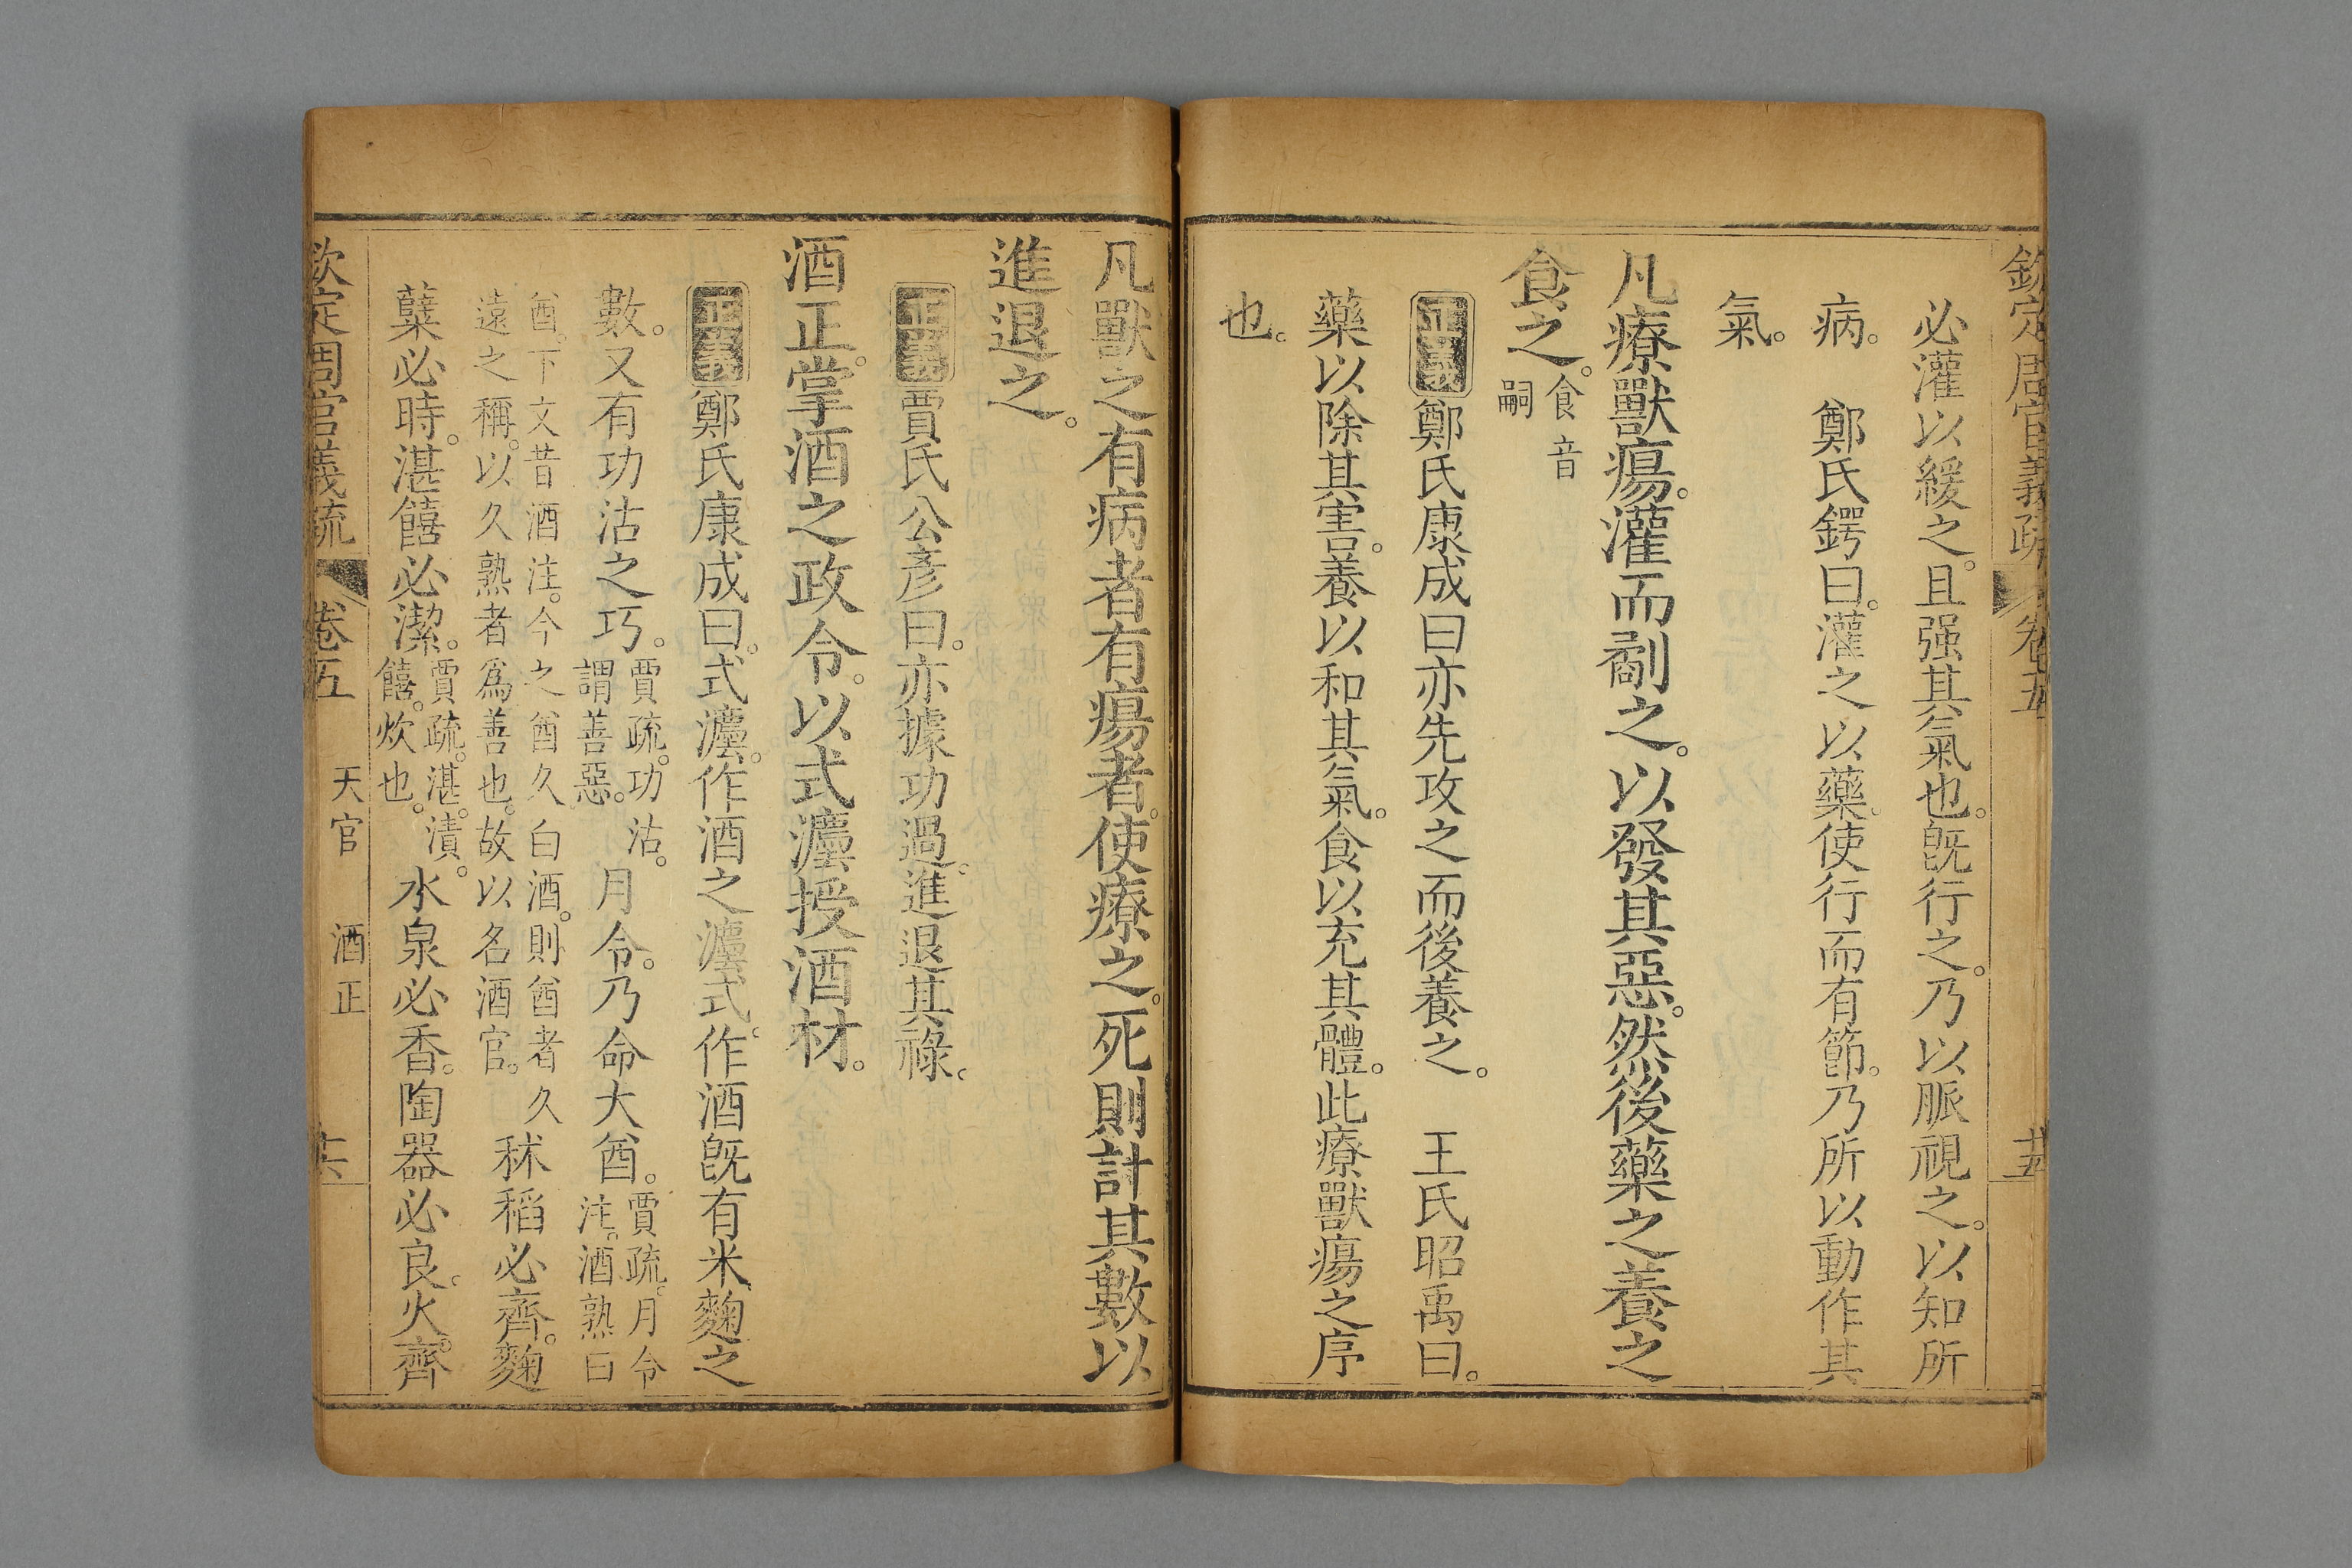 欽定周官義疏 卷五
必灌以緩之。且强其氣也。旣行之。乃以脈視之。以知所
病。 鄭氏鍔曰。灌之以藥。使行而有節。乃所以動作其
氣。
凡療獸瘍。灌而劀之。以發其惡。然後藥之養之
食之。食音嗣
正義鄭氏康成曰亦先攻之而後養之。 王氏昭禹曰。
藥以除其害。養以和其氣。食以充其體。此療獸瘍之序
也。
凡獸之有病者有瘍者。使療之。死則計其數以
進退之。
正義賈氏公彥曰。亦據功過。進退其祿。
酒正。掌酒之政令。以式灋授酒材。
正義鄭氏康成曰。式灋。作酒之灋式。作酒旣有米麴之
數。又有功沽之巧。賈疏。功沽。謂善惡。月令。乃命大酋。賈疏。月令注。酒熟曰
酋。下文昔酒注。今之酋久白酒。則酋者久遠之稱。以久熟者爲善也。故以名酒官。秫稻必齊。麴
糵必時。湛饎必潔。賈疏。湛。漬。饎。炊也。水泉必香。陶器必良。火齊
欽定周官義疏 卷五 天官 酒正